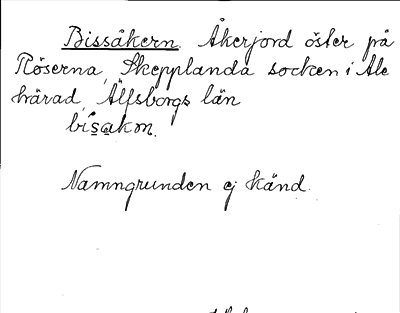 Bissåkern. Åkerjord öster på
Röserna, Skepplanda socken i Ale
härad, Älfsborgs län
bisakon.
Namngrunden ej känd.